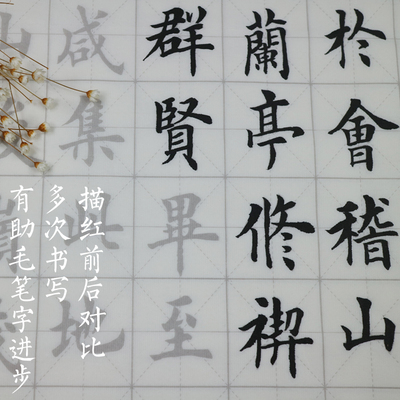 於會稽山
蘭亭修禊
群賢畢至
咸集此地
描红前后对比
多次书写
有助毛笔字进步